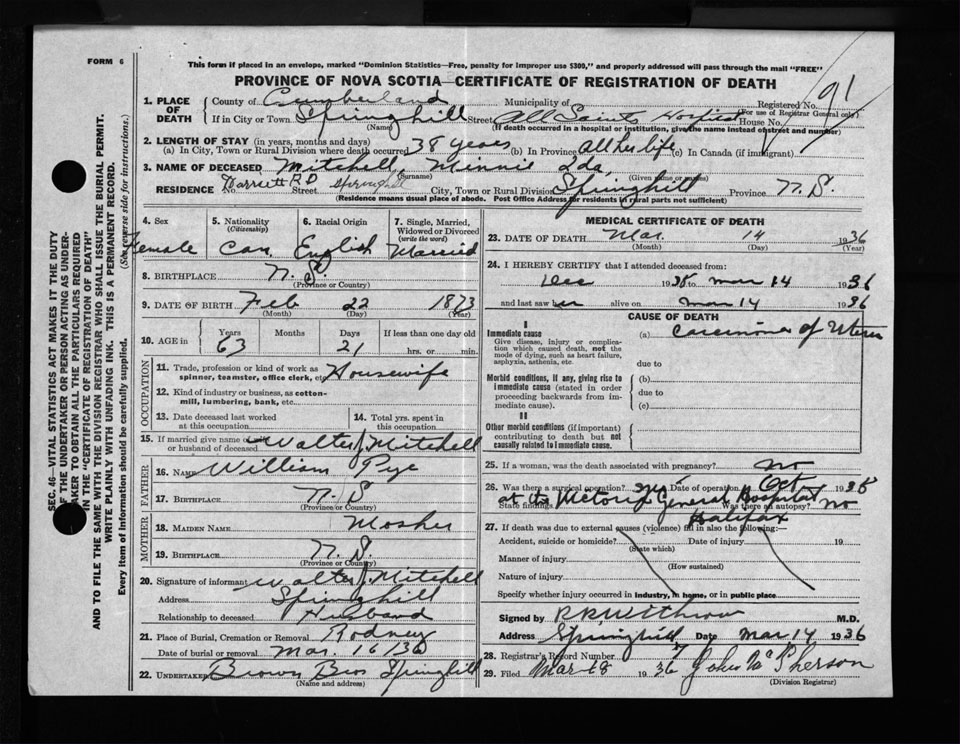 FORM 6
This form if placed in an envelope, marked "Dominion Statistics—Free, penalty for improper use $300," and properly addressed will pass through the mail "FREE"
PROVINCE OF NOVA SCOTIA—CERTIFICATE OF REGISTRATION OF DEATH
SEC. 46—VITAL STATISTICS ACT MAKES IT THE DUTY
OF THE UNDERTAKER OR PERSON ACTING AS UNDER-
TAKER TO OBTAIN ALL THE PARTICULARS REQUIRED
IN THE "CERTIFICATE OF REGISTRATION OF DEATH"
AND TO FILE THE SAME WITH THE DIVISION REGISTRAR WHO SHALL ISSUE THE BURIAL PERMIT.
WRITE PLAINLY WITH UNFADING INK. THIS IS A PERMANENT RECORD.
Every item of Information should be carefully supplied. (See reverse side for instructions.)
1. PLACE OF DEATH County of Cumberland Municipality of Registered No. 91
(For use of Registrar General only)
If in City or Town Springhill Street All Saints Hospital House No.
(Name) (If death occurred in a hospital or institution, give the name instead of street and number)
2. LENGTH OF STAY (in years, months and days)
(a) In City, Town or Rural Division where death occurred 38 years (b) In Province All her life (c) In Canada (if immigrant)
3. NAME OF DECEASED Mitchell Minnie Ida
(Surname) (Given name or names)
RESIDENCE No. R D Street Springhill City, Town or Rural Division Springhill Province N. S.
(Residence means usual place of abode. Post Office Address for residents in rural parts not sufficient)
4. Sex 5. Nationality (Citizenship) 6. Racial Origin 7. Single, Married, Widowed or Divorced (write the word)
Female Can. English Married
8. BIRTHPLACE N. S.
(Province or Country)
9. DATE OF BIRTH Feb 22 1873
(Month) (Day) (Year)
10. AGE in Years Months Days If less than one day old
63 21 hrs. or min.
OCCUPATION
11. Trade, profession or kind of work as spinner, teamster, office clerk, etc. Housewife
12. Kind of industry or business, as cotton-mill, lumbering, bank, etc.
13. Date deceased last worked at this occupation
14. Total yrs. spent in this occupation
15. If married give name of or husband of deceased Walter J. Mitchell
FATHER
16. NAME William Pye
17. BIRTHPLACE N. S
(Province or Country)
MOTHER
18. MAIDEN NAME Mosher
19. BIRTHPLACE N. S.
(Province or Country)
20. Signature of informant Walter J. Mitchell
Address Springhill
Relationship to deceased Husband
21. Place of Burial, Cremation or Removal Rodney
Date of burial or removal Mar. 16/36
22. UNDERTAKER Brown Bros Springhill
(Name and address)
MEDICAL CERTIFICATE OF DEATH
23. DATE OF DEATH Mar. 14 1936
(Month) (Day) (Year)
24. I HEREBY CERTIFY that I attended deceased from:
Dec 1935 to Mar 14 1936
and last saw her alive on Mar 14 1936
CAUSE OF DEATH
I
Immediate cause (a) Carcinoma of Uterus
Give disease, injury or complication which caused death, not the mode of dying, such as heart failure, asphyxia, asthenia, etc.
due to
Morbid conditions, if any, giving rise to immediate cause (stated in order proceeding backwards from immediate cause).
(b)
due to
(c)
II
Other morbid conditions (if important) contributing to death but not causally related to immediate cause.
25. If a woman, was the death associated with pregnancy? No
26. Was there a surgical operation? Date of operation Oct 1935
State findings at the Victoria General Hospital Was there an autopsy? No
Halifax
27. If death was due to external causes (violence) fill in also the following:—
Accident, suicide or homicide? Date of injury 19
(State which)
Manner of injury
(How sustained)
Nature of injury
Specify whether injury occurred in industry, in home, or in public place
Signed by R R Withrow M.D.
Address Springhill Date Mar 14 1936
28. Registrar's Record Number 7
29. Filed Mar 18 1936 John McPherson
(Division Registrar)